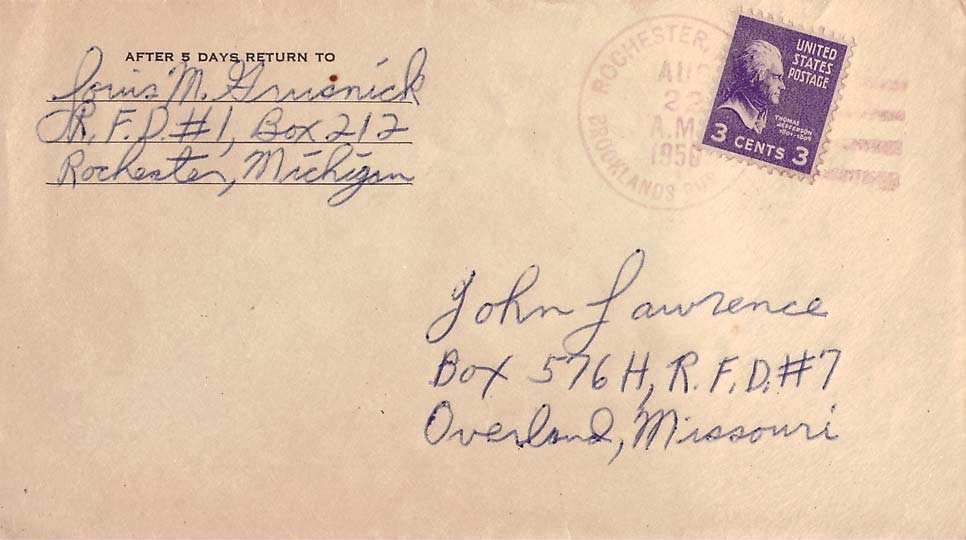 AFTER 5 DAYS RETURN TO
Louis M. Grusnick
R.F.D. #1, Box 212
Rochester, Michigan
ROCHESTER,
AUG
A.M.
BROOKLANDS
UNITED
STATES
POSTAGE
THOMAS
JEFFERSON
1801-1809
3 CENTS 3
John Lawrence
Box 576H, R.F.D. #7
Overland, Missouri